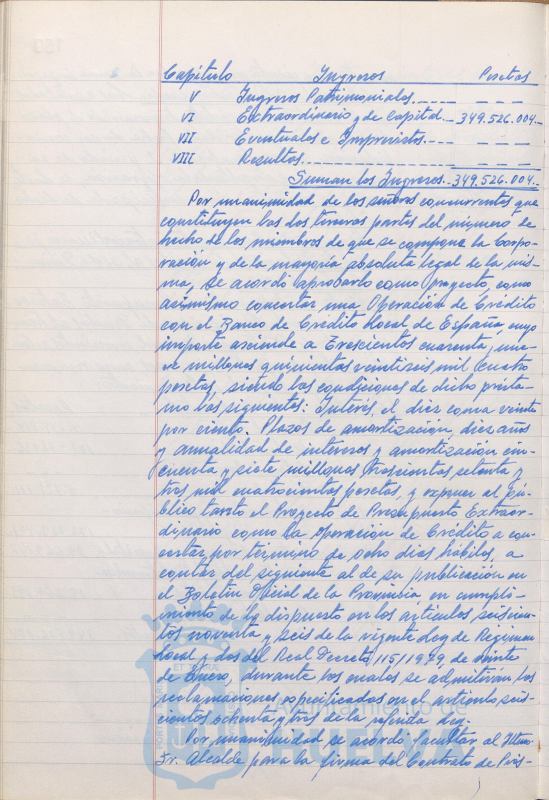 Capítulo Ingresos Pesetas
V Ingresos Patrimoniales.---- - - -
VI Extraordinario y de Capital.- 349.526.004.-
VII Eventuales e Imprevistos.--- - - -
VIII Resultas.------------ - - -
Suman los Ingresos.- 349.526.004.-
Por unanimidad de los señores concurrentes que
constituyen las dos terceras partes del número de
hecho de los miembros de que se compone la Corpo-
ración y de la mayoría absoluta legal de la mis-
ma, se acordó aprobarlo como proyecto, como
asimismo concertar una Operación de Crédito
con el Banco de Crédito Local de España cuyo
importe asciende a Trescientos cuarenta, nue-
ve millones quinientos veintiseis mil cuatro
pesetas, siendo las condiciones de dicho présta-
mo las siguientes: Interés, el diez coma veinte
por ciento. Plazos de amortización, diez años
y anualidad de intereses y amortización cin-
cuenta y siete millones trescientas setenta y
tres mil cuatrocientas pesetas, y exponer al pú-
blico tanto el Proyecto de Presupuesto Extraor-
dinario como la Operación de Crédito a con-
certar por término de ocho días hábiles, a
contar del siguiente al de su publicación en
el Boletín Oficial de la Provincia en cumpli-
miento de lo dispuesto en los artículos seiscien-
tos noventa y seis de la vigente Ley de Régimen
Local y dos del Real Decreto 115/1979, de veinte
de Enero, durante los cuales se admitirán las
reclamaciones especificadas en el artículo seis-
cientos ochenta y tres de la referida Ley.
Por unanimidad se acordó facultar al Iltmo.
Sr. Alcalde para la firma del Contrato de Prés-
Ayuntamiento de
HUELVA